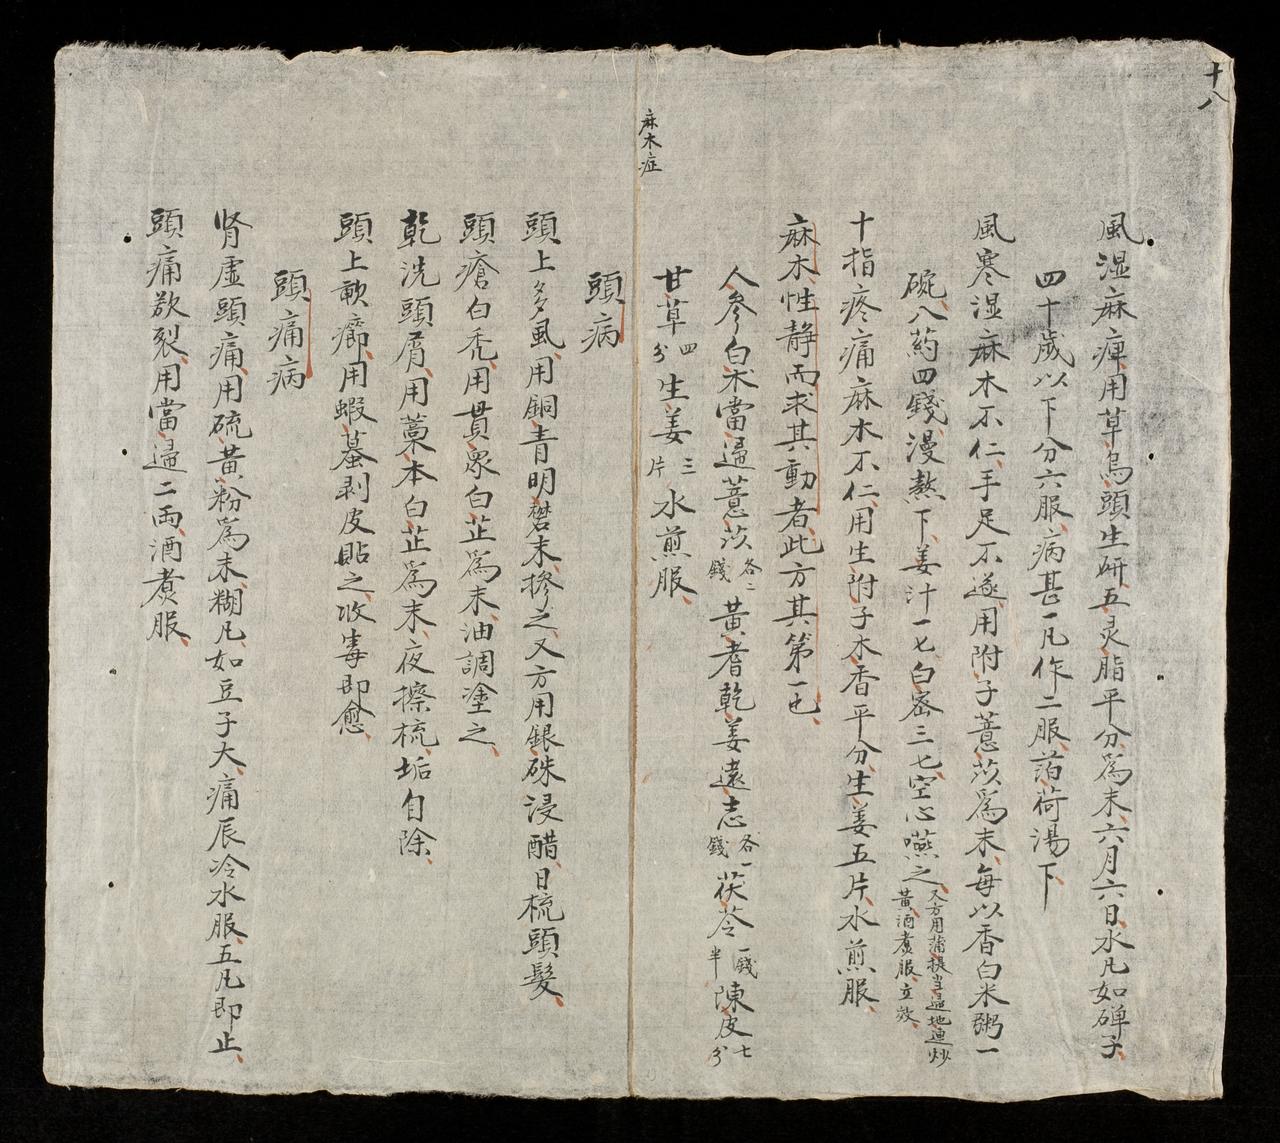 十八
風湿麻痺、用草烏頭生研、五灵脂平分、為末、六月六日、水凡如磾子、
四十歲以下分六服、病甚一凡作二服、萡荷湯下、
風寒湿麻木不仁、手足不遂、用附子薏苡為末、每以香白米粥一
碗、入葯四錢、漫熬下、姜汁一匕、白密三七、空心嚥之、
又方用蒲提当歸地連炒
黃酒煮服立效、
十指疼痛麻木不仁、用生附子木香平分、生姜五片、水煎服、
麻木、性静而求其動者、此方其第一也、
人參白术當歸薏苡各二錢黃耆乾姜遠志各一錢茯苓一錢半陳皮七分
甘草四分生姜三片水煎服、
麻木症
頭病
頭上多風、用銅青明礬末摻之、又方用銀硃浸醋日梳頭髮、
頭瘡白禿、用貫眾白芷為末、油調塗之、
乾洗頭屑、用藁本白芷為末、夜擦梳、垢自除、
頭上軟癤、用蝦蟇剥皮貼之、收毒即愈、
頭痛病
肾虚頭痛、用硫黃粉為末、糊凡如豆子大、痛辰冷水服、五凡即止、
頭痛欲裂、用當歸二両、酒煮服、